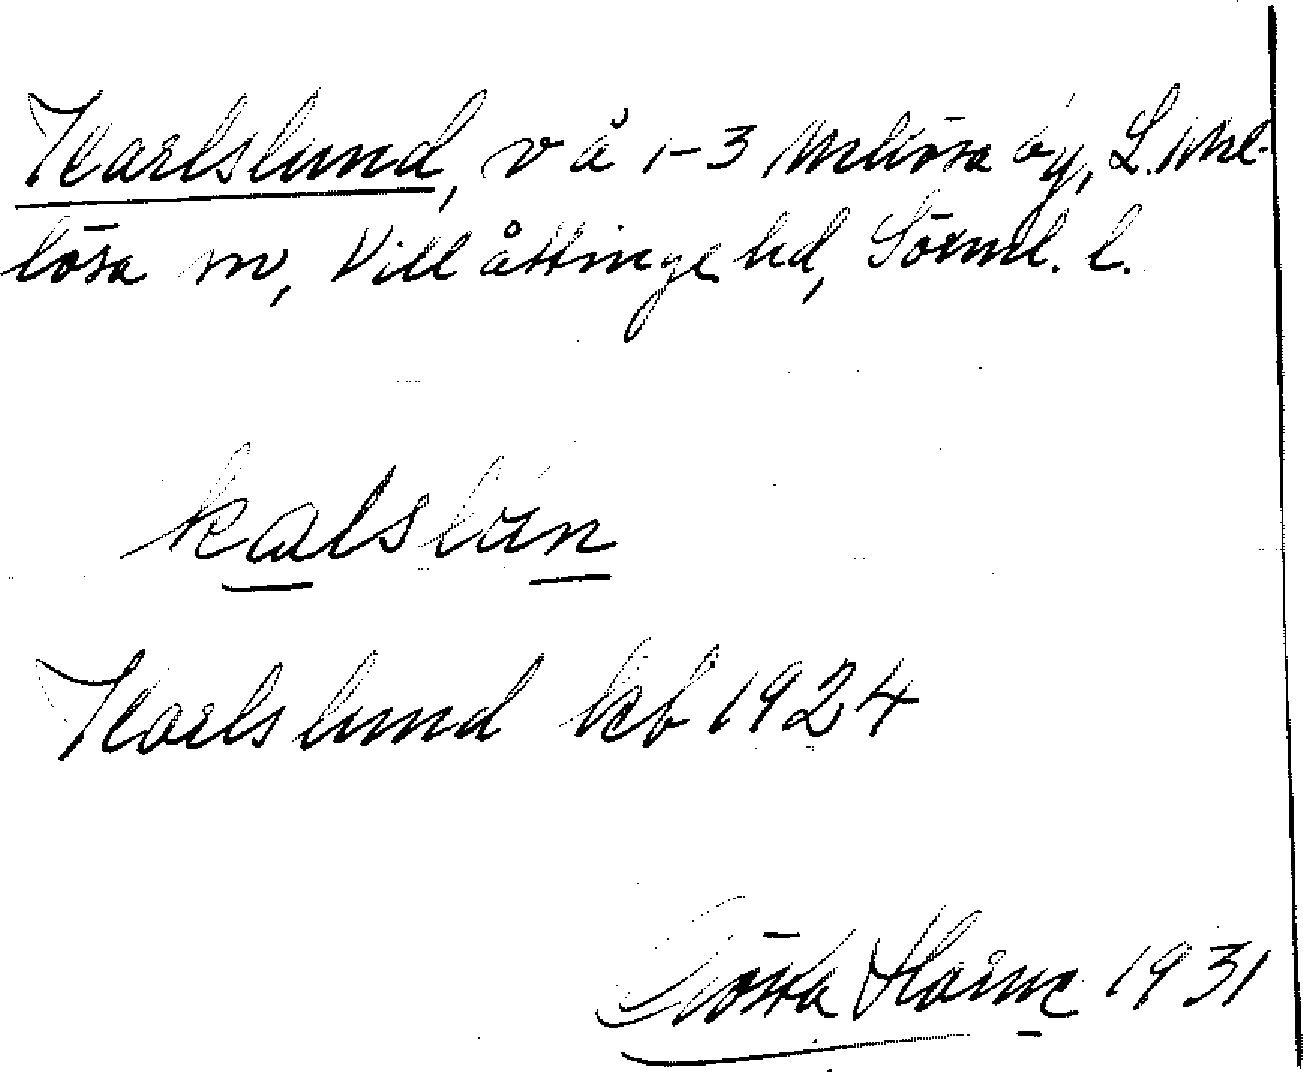 Karlslund, v å 1-3 Mellösa by, L. Mel-
lösa sn, Villåttinge hd, Sörml. l.
kalslun
Karlslund kb 1924
Gösta 1931